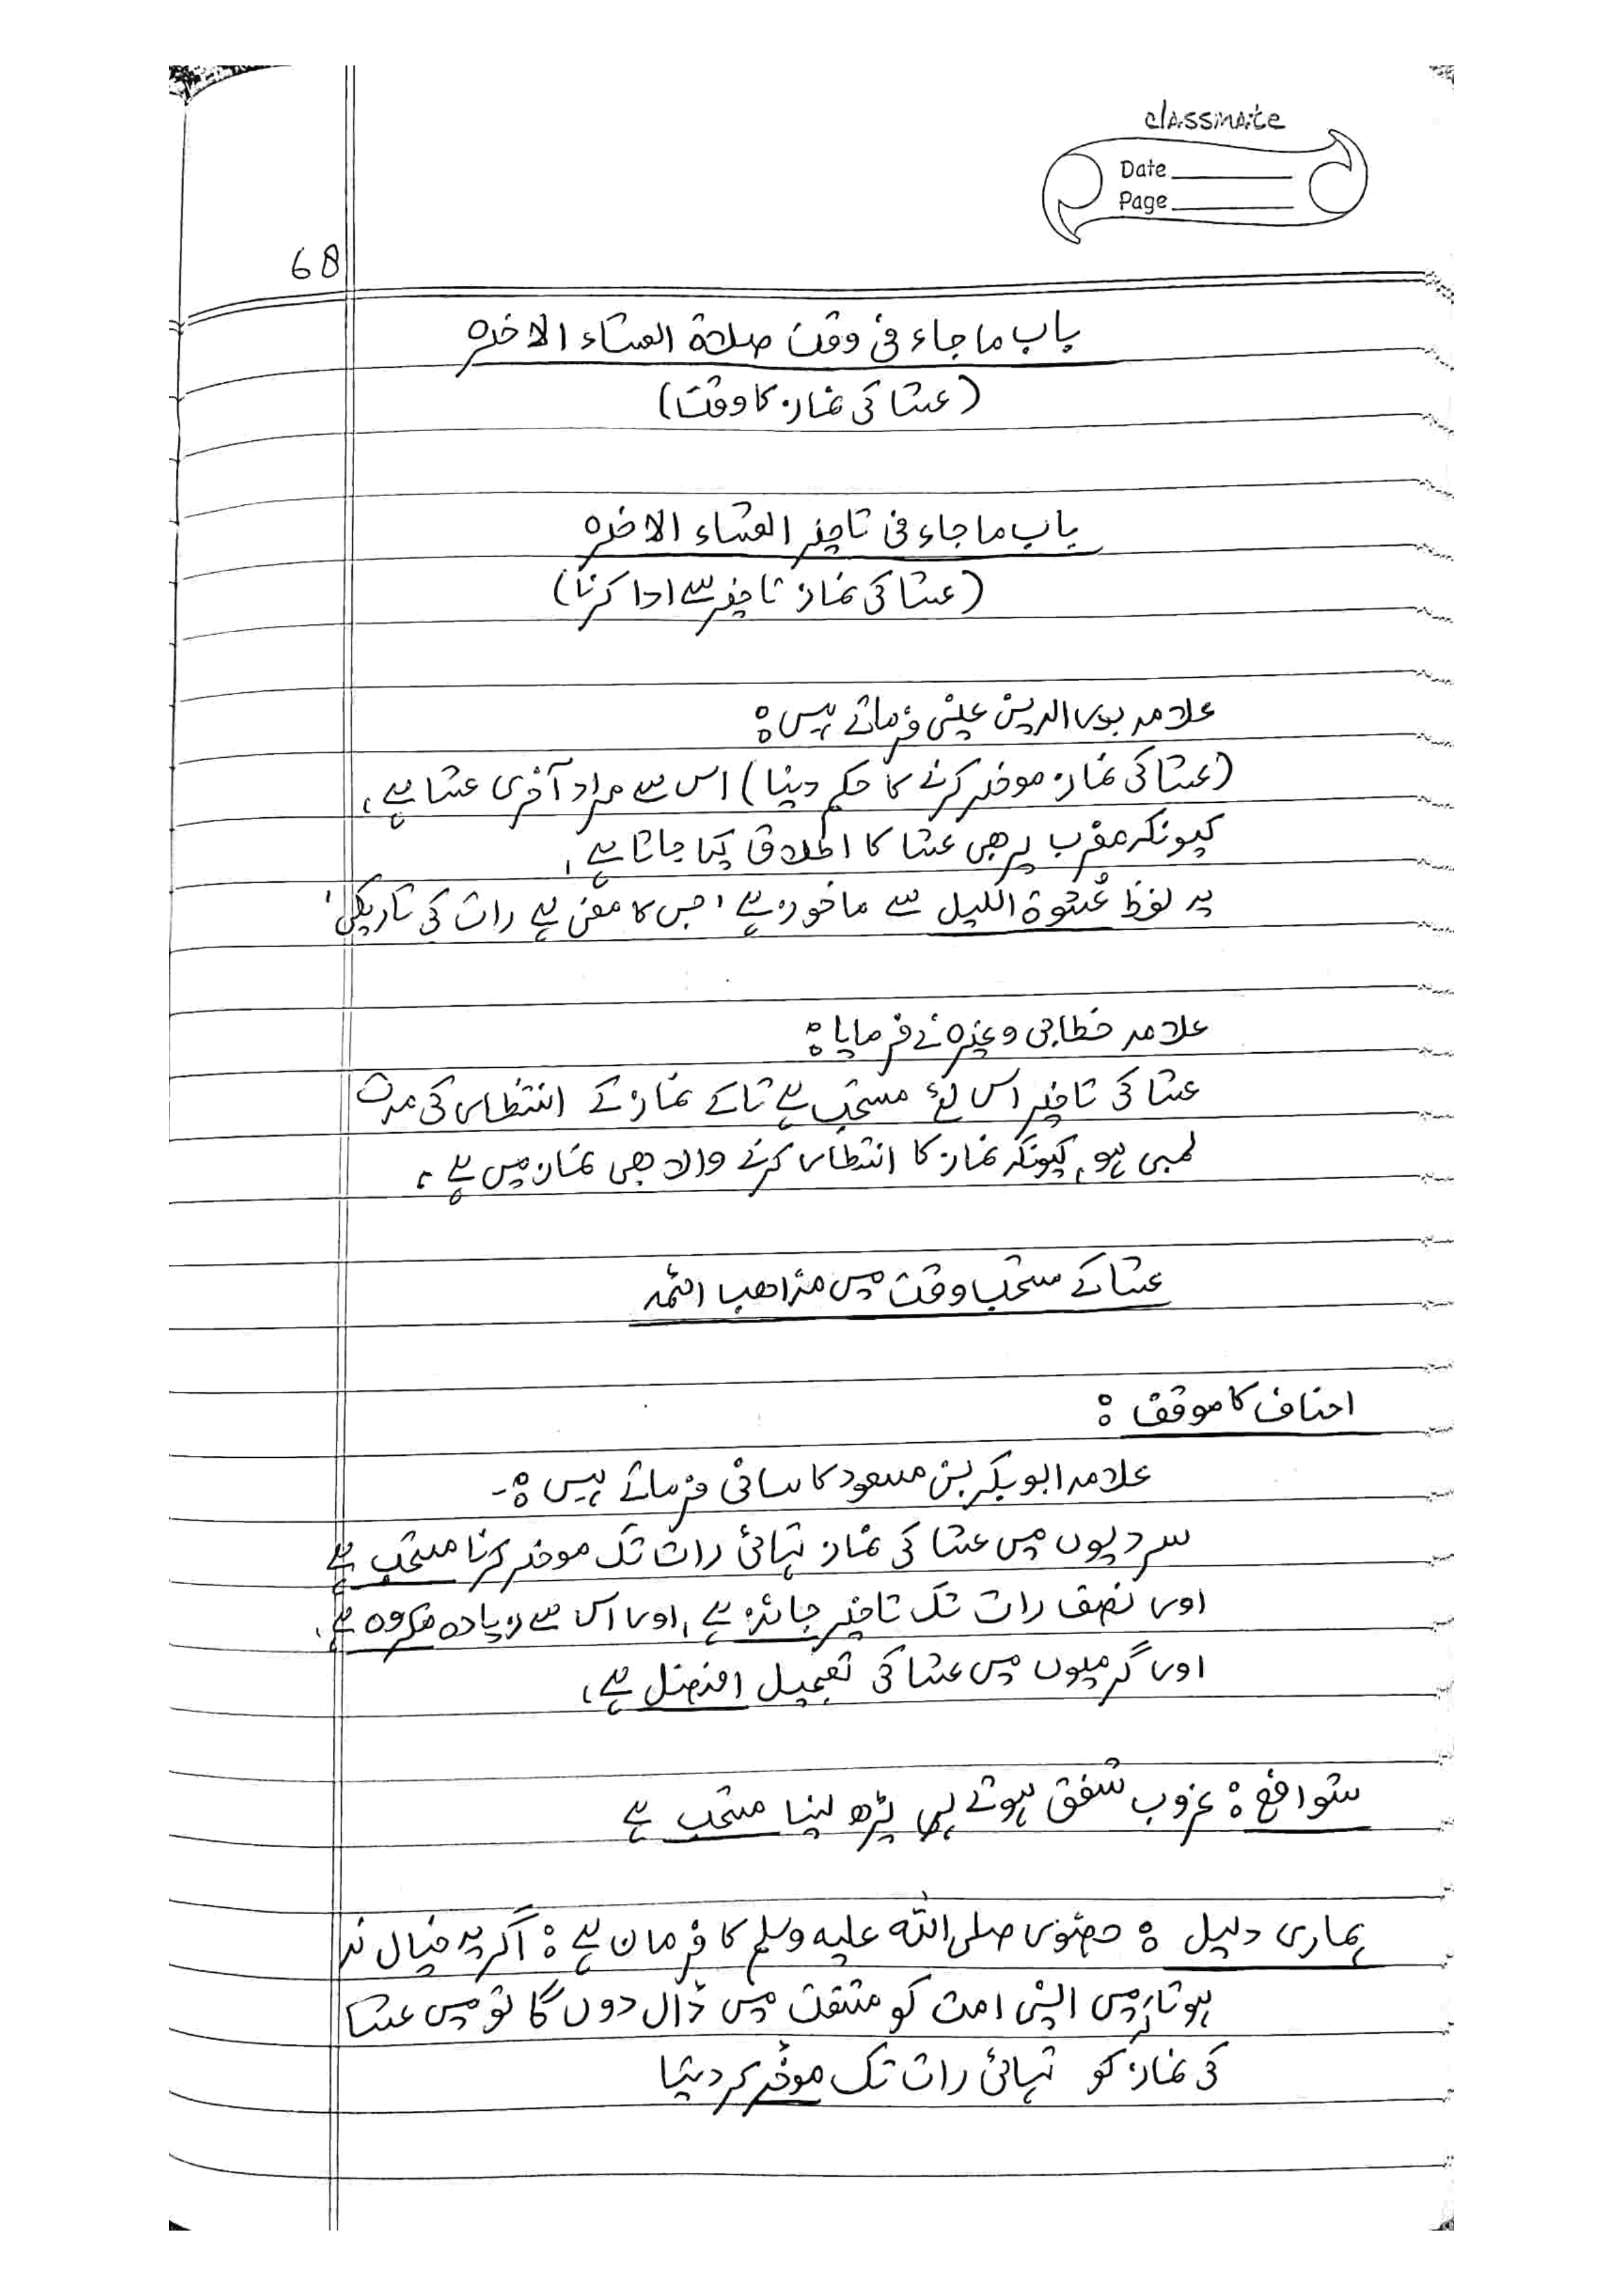 classmate
Date
Page
68
باب ما جاء فی وقت صلاة العشاء الاخره
(عشا کی نماز کا وقت)
باب ما جاء فی تاخیر العشاء الاخره
(عشا کی نماز تاخیر سے ادا کرنا)
علامہ بدر الدین عینی فرماتے ہیں:
(عشا کی نماز موخر کرنے کا حکم دینا) اس سے مراد آخری عشا ہے،
کیونکہ مغرب پر بھی عشا کا اطلاق کیا جاتا ہے،
یہ لفظ عُشوة اللیل سے ماخوذ ہے، جس کا معنی ہے رات کی تاریکی،
علامہ خطابی وغیرہ نے فرمایا:
عشا کی تاخیر اس لئے مستحب ہے تاکے نماز کے انتظار کی مدت
لمبی ہو، کیونکہ نماز کا انتظار کرنے والا بھی نماز میں ہے،
عشا کے مستحب وقت میں مذاھب ائمہ
احناف کا موقف:
علامہ ابو بکر بن مسعود کاسانی فرماتے ہیں:-
سردیوں میں عشا کی نماز تہائی رات تک موخر کرنا مستحب ہے
اور نصف رات تک تاخیر جائز ہے، اور اس سے زیادہ مکروہ ہے،
اور گرمیوں میں عشا کی تعجیل افضل ہے،
شوافع: غروب شفق ہوتے ہی پڑھ لینا مستحب ہے
ہماری دلیل: حضور صلی اللہ علیہ وسلم کا فرمان ہے: اگر یہ خیال نہ
ہوتا کہ میں اپنی امت کو مشقت میں ڈال دوں گا تو میں عشا
کی نماز کو تہائی رات تک موخر کر دیتا